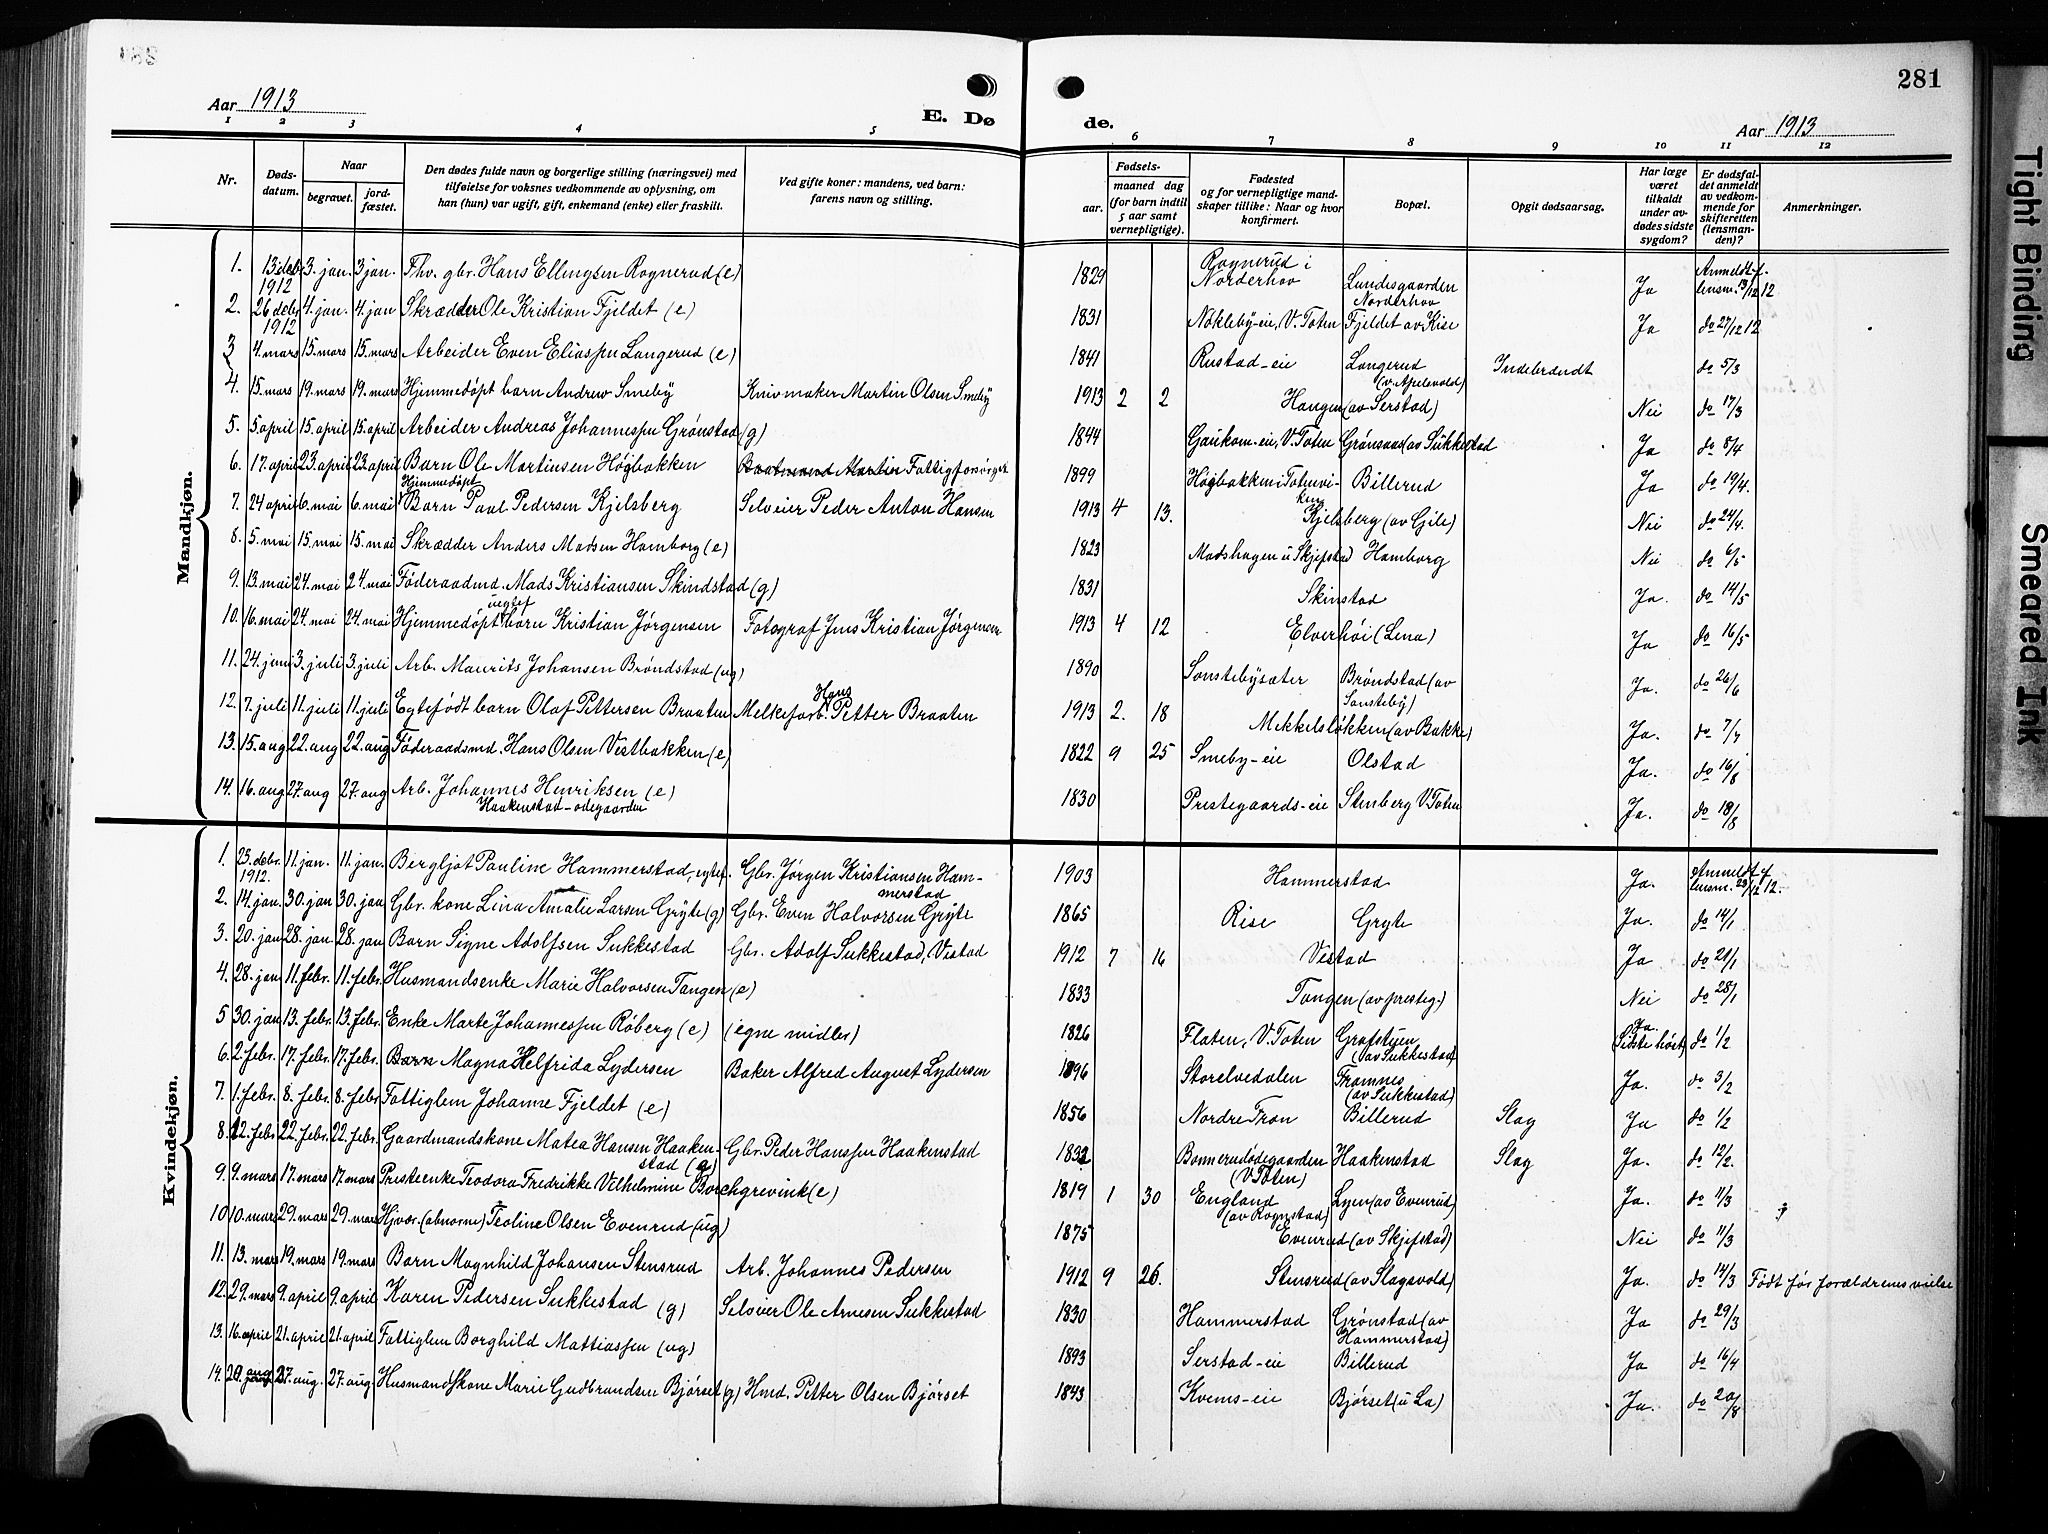 Aar 1913
E. Dø
de.
Aar 1913
281
1 2 3 4 5 6 7 8 9 10 11 12
Nr.
Døds-
datum.
Naar
begravet.
jord-
fæstet.
Den dødes fulde navn og borgerlige stilling (næringsvei) med
tilføielse for voksnes vedkommende av oplysning, om
han (hun) var ugift, gift, enkemand (enke) eller fraskilt.
Ved gifte koner: mandens, ved barn:
farens navn og stilling.
Fødsels-
aar.
maaned dag
(for barn indtil
5 aar samt
vernepligtige).
Fødested
og for vernepligtige mand-
skaper tillike: Naar og hvor
konfirmert.
Bopæl.
Opgit dødsaarsag.
Har læge
været
tilkaldt
under av-
dødes sidste
sygdom?
Er dødsfal-
det anmeldt
av vedkom-
mende for
skifteretten
(lensman-
den)?
Anmerkninger.
Mandkjøn.
1. 13 debr 1912 3. jan. 3 jan. Fhv. gbr. Hans Ellingsen Rognerud (e) 1829 Rognerud i Norderhov Lundesgaarden Norderhov Ja Anmeldt f. lensm. 13/12 12
2. 26 debr 1912 4. jan. 4. jan Skrædder Ole Kristian Fjeldet (e) 1831 Nökleby-eie, V. Toten Fjeldet av Kise Ja do 27/12 12
3 4. mars 15. mars 15. mars Arbeider Even Eliassen Langerud (e) 1841 Rustad-eie Langerud (v. Apelsvold) Indebrændt do 5/3
4. 15. mars 19. mars 19. mars Hjemmedöpt barn Andrew Smeby Knivmaker Martin Olsen Smeby 1913 2 2 Haugen (av Serstad) Nei do 17/3
5. 5. april 15. april 15. april Arbeider Andreas Johannessen Grönstad (g) 1844 Gaukom-eie, V. Toten Grönsaas (av Sukkestad Ja do 8/4
6. 17. april 23. april 23. april Barn Ole Martinsen Högbakken Baatmand Martin Fattigforsörget 1899 Högbakken i Totenvi-ken Billerud Ja do 19/4.
7. 24 april 6. mai 6. mai Hjemmedöpt Barn Paul Pedersen Kjelsberg Selveier Peder Anton Hansen 1913 4 13. Kjelsberg (av Gile) Nei do 24/4.
8. 5. mai 15. mai 15. mai Skrædder Anders Madsen Hamborg (e) 1823 Madshagen u Skjefstad Hamborg Nei do 6/5
9. 13. mai 24. mai 24. mai Föderaadmd. Mads Kristiansen Skindstad (g) 1831 Skinstad Ja. do 14/5
10. 16. mai 24. mai 24. mai Hjemmedöpt uegtef barn Kristian Jörgensen Fotograf Jens Kristian Jörgensen 1913 4 12 Elverhöi (Lena) Ja do 16/5
11. 24. juni 3. juli 3. juli Arb. Maurits Johansen Bröndstad (ug) 1890 Sönstebysæter Bröndstad (av Sönsteby) Ja. do 26/6
12. 7. juli 11. juli 11. juli Egtefödt barn Olaf Pettersen Braaten Melkeforb. Hans Petter Braaten 1913 2. 18 Mikkelslökken (av Bakke) Ja. do 7/7
13. 15. aug 22. aug 22. aug Föderaadsmd. Hans Olsen Vestbakken (e) 1822 9 25 Smeby-eie Olstad Ja. do 16/8
14. 16. aug 27. aug 27. aug Arb. Johannes Henriksen (e) Haakenstad-ödegaarden 1830 Prestegaards-eie Stenberg V. Toten Ja. do 18/8
Kvindekjøn.
1. 23. debr. 1912. 11. jan. 11. jan. Bergljot Pauline Hammerstad, egtef. Gbr. Jörgen Kristiansen Ham-merstad 1903 Hammerstad Ja. Anmeldt f lensm. 23/12 12.
2. 14. jan. 30. jan 30. jan Gbr. kone Lina Amalie Larsen Gryte (g) Gbr. Even Halvorsen Gryte 1865 Rise Gryte Ja. do 14/1
3. 20. jan 28. jan. 28. jan Barn Signe Adolfsen Sukkestad Gbr. Adolf Sukkestad, Vestad 1912 7 16 Vestad Ja do 21/1
4. 28. jan 11. febr. 11. febr. Husmandsenke Marie Halvorsen Tangen (e) 1833 Tangen (av presteg.) Nei do 28/1
5 30. jan 13. febr. 13. febr. Enke Marte Johannessen Röberg (e) (egne midler) 1826 Flaten, V. Toten Grafstuen (av Sukkestad) Ja. (Sidste höst) do 1/2
6. 2. febr. 17. febr. 17. febr. Barn Magna Helfrida Lydersen Baker Alfred August Lydersen 1896 Storelvedalen Framnes (av Sukkestad) Ja. do 3/2
7. 1. febr. 8. febr. 8. febr Fattiglem Johanne Fjeldet (e) 1856 Nordre Fron Billerud Slag Ja do 1/2
8. 12. febr 22. febr. 22. febr. Gaardmandskone Matea Hansen Haaken-stad (g) Gbr. Peder Hanssen Haakenstad 1832 Bonnerudödegaarden (V. Toten) Haakenstad Slag Ja. do 12/2.
9. 9. mars 17. mars 17. mars Presteenke Teodora Fredrikke Vilhelmine Borchgrevink (e) 1819 1 30 England (av Rognstad) Lyen (av Evenrud) Ja. do 11/3
10 10. mars 29. mars 29. mars Hjvær. (abnorme) Teoline Olsen Evenrud (ug) 1875 Evenrud (av Skjefstad) Nei do 11/3
11. 13. mars 19. mars 19. mars Barn Magnhild Johansen Stensrud Arb. Johannes Pedersen 1912 9 26. Stensrud (av Slagsvold) Ja. do 14/3 Födt för forældrenes vielse
12. 29. mars 9. april 9. april Karen Pedersen Sukkestad (g) Selveier Ole Arnesen Sukkestad 1830 Hammerstad Grönstad (av Hammerstad) Ja do 29/3
13. 16. april 21. april 21. april Fattiglem Borghild Mattiassen (ug) 1893 Serstad-eie Billerud Ja do 16/4
14. 20. aug 27. aug. 27. aug. Husmandskone Marie Gudbrandsen Bjørset (g) Hmd. Petter Olsen Bjørset 1843 Kvems-eie Bjørset (u La) Ja. do 20/8
Tight Binding
Smeared Ink